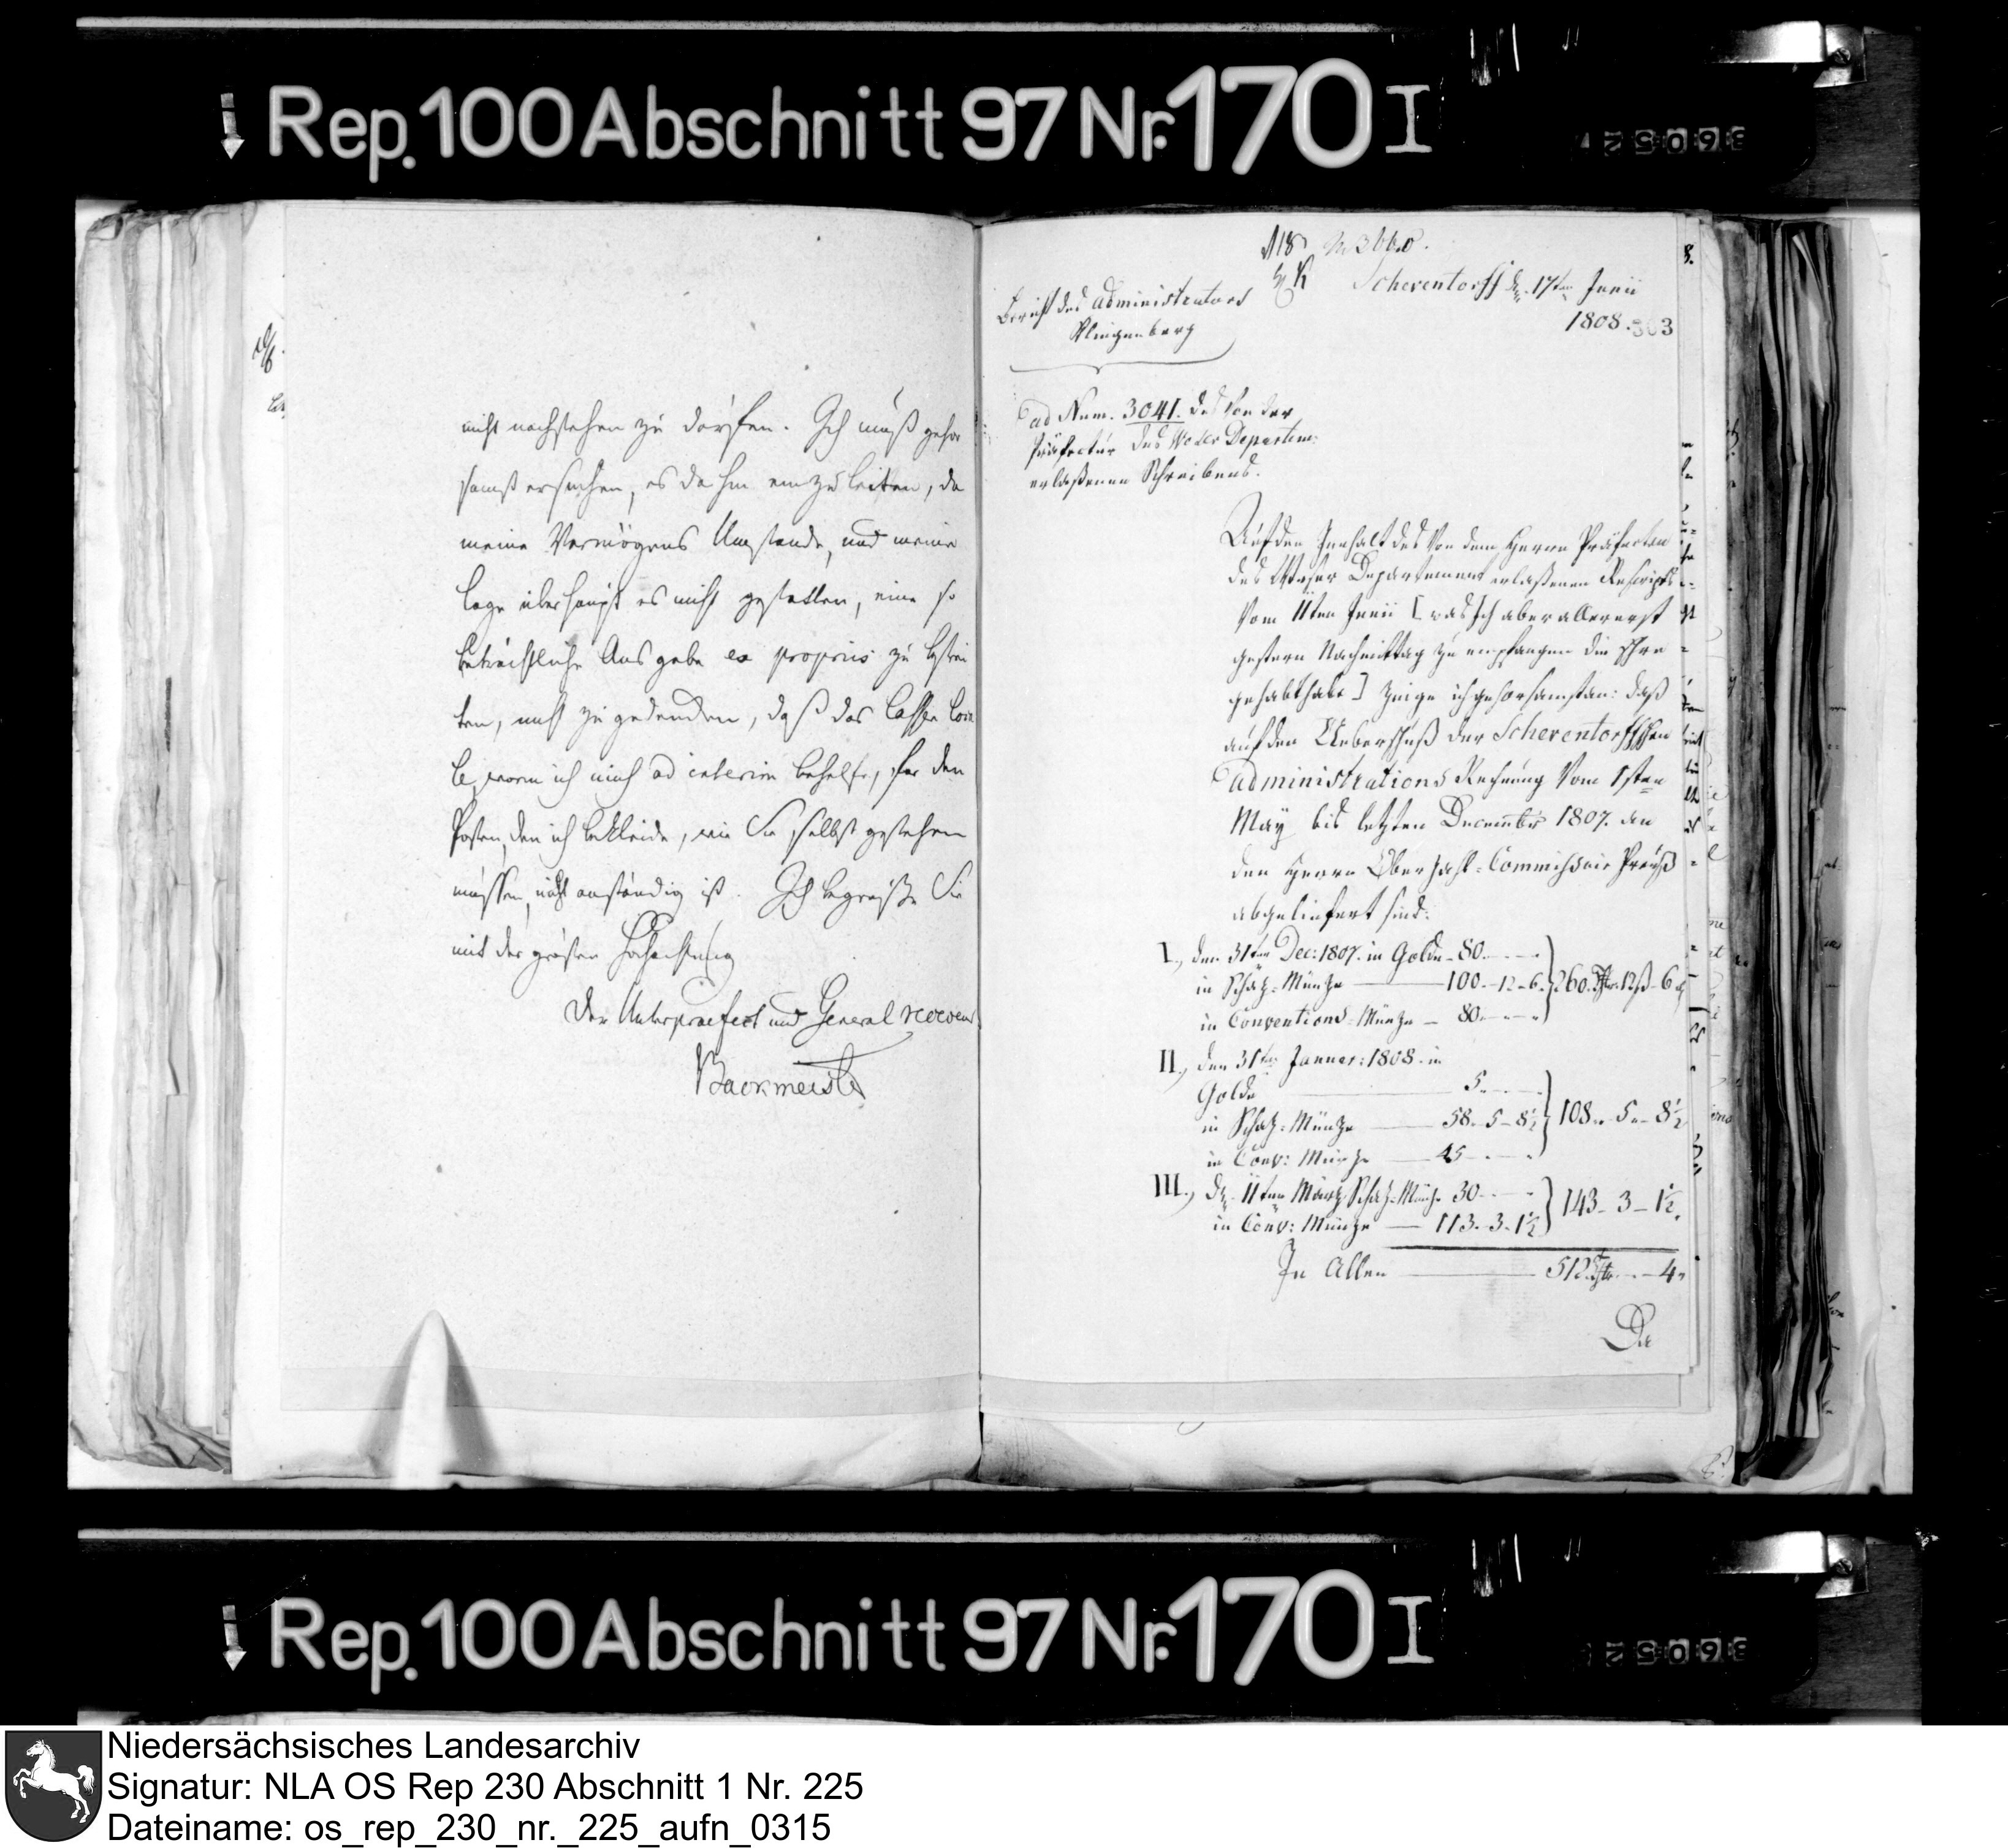 Rep. 100 Abschnitt 97 Nr. 170 I
nicht nachstehen zu dörfen. Ich muß gehor
samst ersuchen, es dahin einzuleiten, da
meine Vermögens Umstände, und meine
Lage überhaupt es nicht gestatten, eine so
beträchtliche Ausgabe ex propriis zu bestrei
ten, nicht zu gedencken, daß das
worin ich mich ad interim behelfe, für den
Posten, den ich bekleide, wie Sie selbst gestehen
müssen, nicht anständig ist. Ich begrüße Sie
mit der größten Hochachtung
Der Unterpraefect und General receveur
Backmeister
118
Scheventorff d. 17ten Junii
1808.
303
Bericht des Administrators
Klingenberg
ad Num. 3041. des von der
Präfectur des Weser Departem:
erlaßenen Schreibens.
Auf den Innhalt des von dem Herrn Präfecten
des Weser Departement erlaßenen Rescripts
vom 11ten Junii [was Ich aber allererst
gestern Nachmittag zu empfangen die Ehre
gehabt habe] zeige ich gehorsamst an: daß
auf den Ueberschuß der Scheventorffschen
Administrations Rechnung vom 1sten
May bis letzten Decembr 1807. an
den Herrn Oberzahl-Commissair Preuß
abgeliefert sind:
I., den 31ten Dec: 1807. in Golde - 80
in Schaz-Münze 100-12-6 260 Rthr. 12 ß 6 d
in Conventions-Münze - 80
II., den 31ten Januar: 1808. in
Golde 5
in Schaz-Münze 58-5-8½ 108-5-8½
in Conv: Münze 45
III., d. 11ten März Schaz-Münze 30
in Conv: Münze 113-3-1½ 143-3-1½
In Allen 512 Rthr. - 4
Da
Rep. 100 Abschnitt 97 Nr. 170 I
Niedersächsisches Landesarchiv
Signatur: NLA OS Rep 230 Abschnitt 1 Nr. 225
Dateiname: os_rep_230_nr._225_aufn_0315